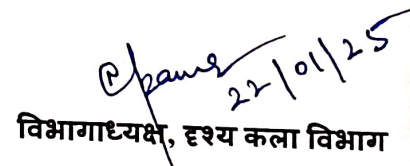 22/01/25
विभागाध्यक्ष, दृश्य कला विभाग